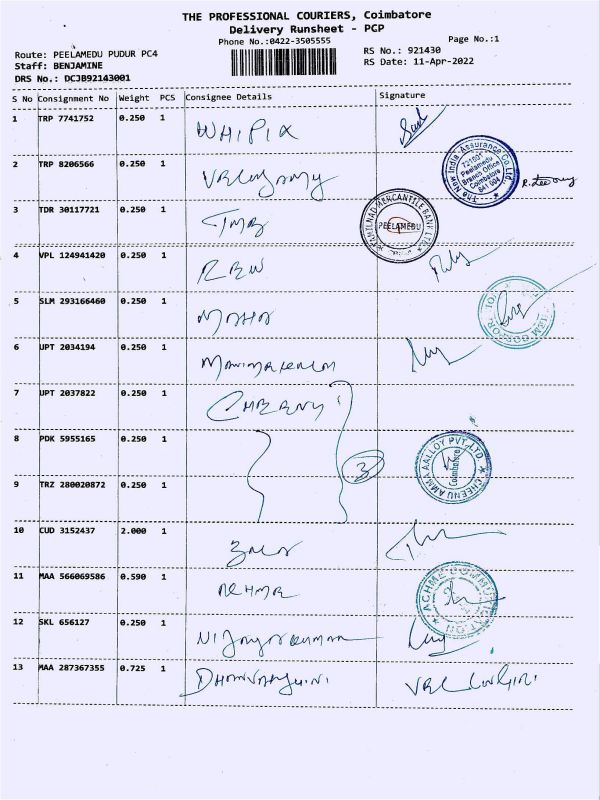 THE PROFESSIONAL COURIERS, Coimbatore
Delivery Runsheet - PCP
Phone No.:0422-3505555
Page No.:1
Route: PEELAMEDU PUDUR PC4
RS No.: 921430
Staff: BENJAMINE
RS Date: 11-Apr-2022
DRS No.: DCJB92143001
S No Consignment No Weight PCS Consignee Details Signature
1 TRP 7741752 0.250 1 WHIPIX
2 TRP 8206566 0.250 1
The New India Assurance Co. Ltd.
721601
Peelamedu
Branch Office
Coimbatore
641 004
3 TDR 30117721 0.250 1 TMB
TAMILNAD MERCANTILE BANK LTD.
PEELAMEDU
4 VPL 124941420 0.250 1
5 SLM 293166460 0.250 1
6 UPT 2034194 0.250 1
7 UPT 2037822 0.250 1
8 PDK 5955165 0.250 1
3
CHEENU AMMA AALLOY PVT. LTD.
Coimbatore
9 TRZ 280020872 0.250 1
10 CUD 3152437 2.000 1
11 MAA 566069586 0.590 1
ACHME COMMUNICATION
12 SKL 656127 0.250 1
13 MAA 287367355 0.725 1